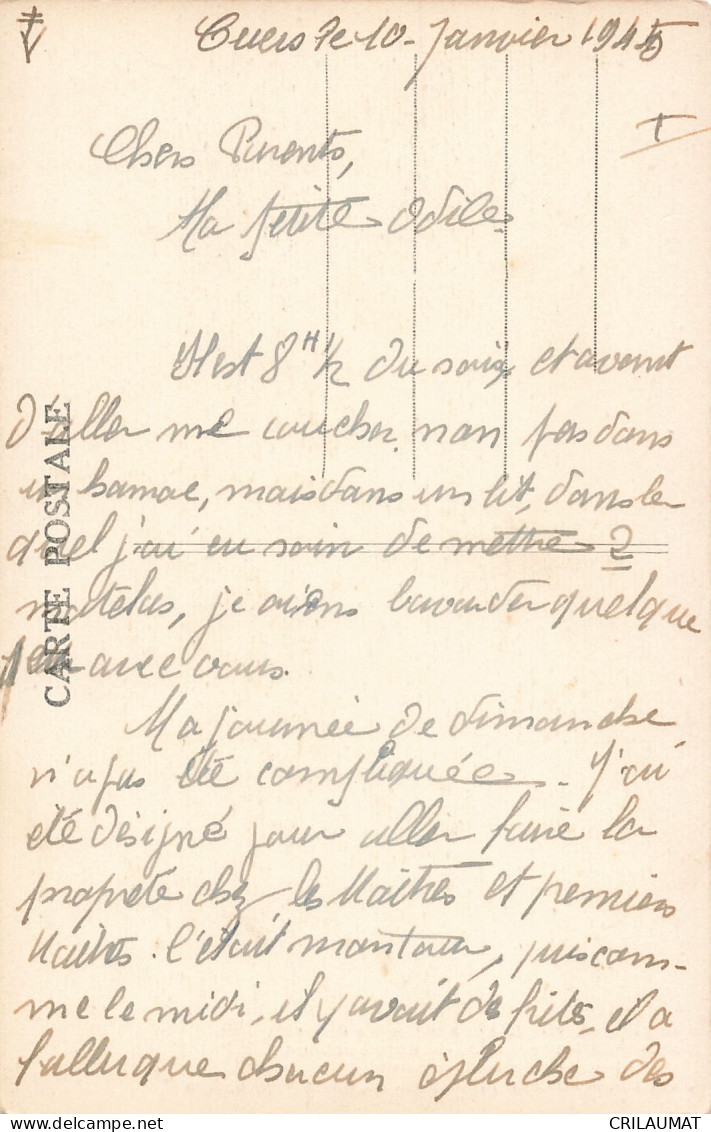 Cuers le 10 Janvier 1945
I
Chers Parents,
Ma petite Odile
Il est 8 H 1/2 du soir et avant
d'aller me coucher non pas dans
un hamac, mais dans un lit, dans le
quel j'ai eu soin de mettre 2
matelas, je viens bavarder quelque
peu avec vous.
Ma journée de dimanche
n'a pas été compliquée. J'ai
été désigné pour aller faire la
propreté chez les Maîtres et premiers
Maîtres. C'était mon tour, puis com-
me le midi, il y avait des frites, il a
fallu que chacun épluche des
CARTE POSTALE
CRILAUMAT